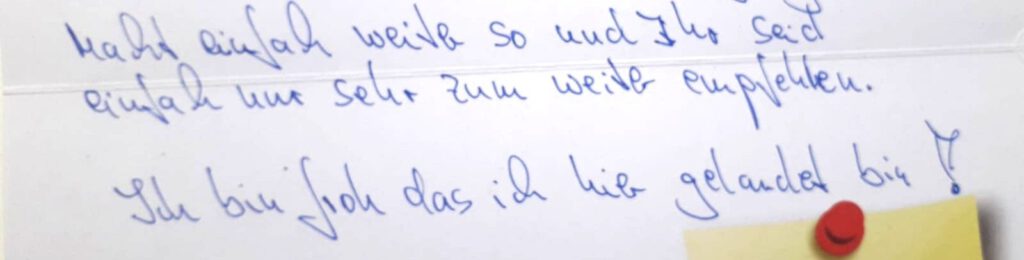 Macht einfach weiter so und Ihr seid
einfach nur sehr zum weiter empfehlen.
Ich bin froh das ich hier gelandet bin!